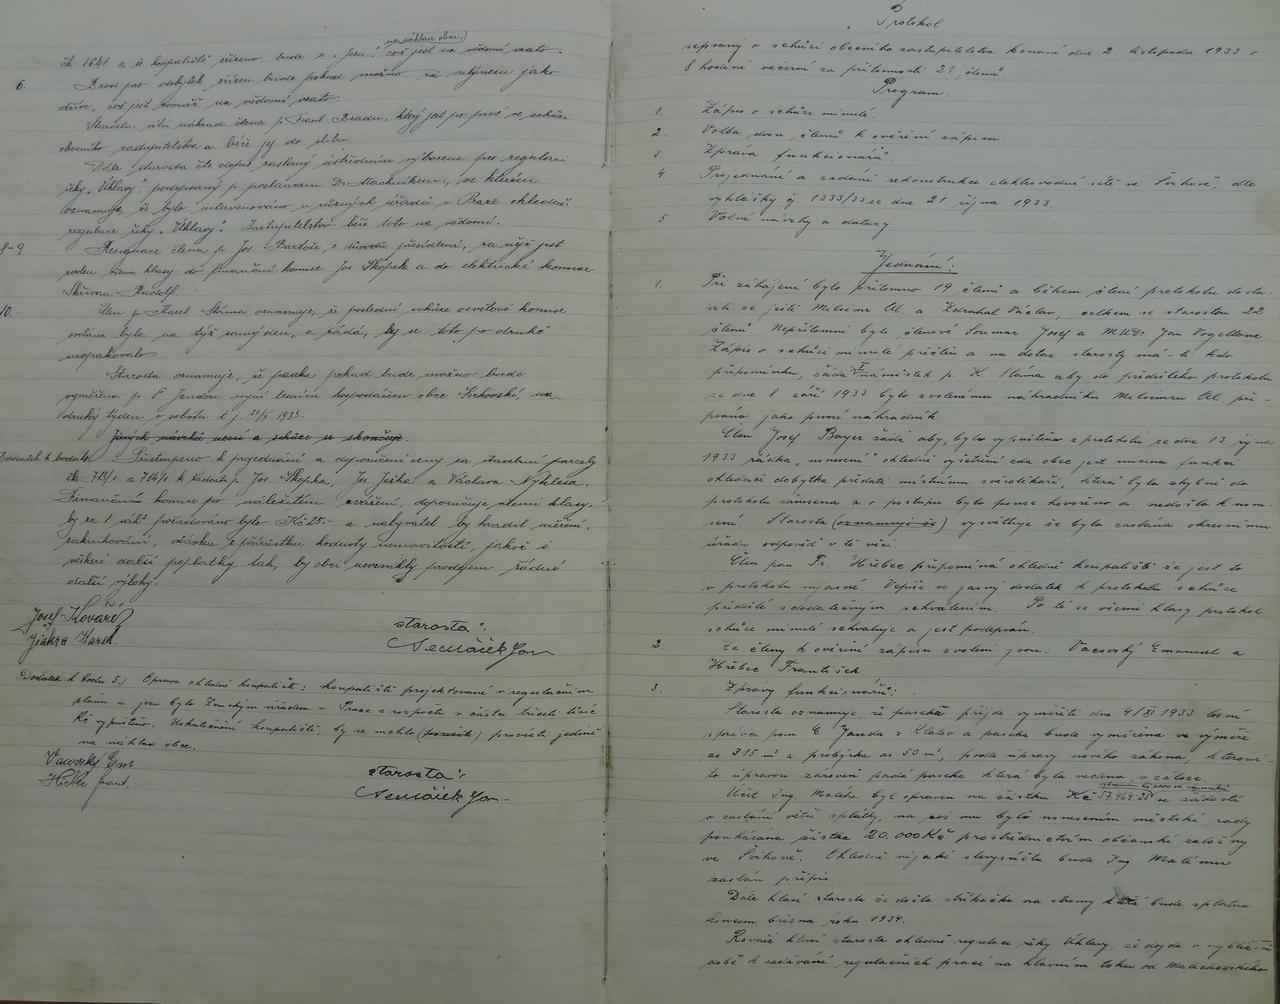 na náklad obce,)
čk 1641 a is koupaliště zřízeno bude a „ což jest na vědomí vzato.
6. Brod pro dobytek zřízen bude pokud možno za mlýnem jako
dříve, což jest rovněž na vědomí vzato.
Starosta vítá náhrad. člena p. Frant. Bradu, který jest po prvé ve schůzi
obecního zastupitelstva a béře jej do slibu.
Dále starosta čte dopis zaslaný ústředním výborem pro regulaci
řeky „Úhlavy", podepsaný p. poslancem Dr. Machníkem, ve kterém
oznamuje, že bylo intervenováno u různých úřadů v Praze ohledně
regulace řeky „Úhlavy". Zastupitelstvo béře toto na vědomí.
8-9 Resignace člena p. Jos. Bartoše, z důvodů přesídlení, za nějž jest
zvolen všemi hlasy do finanční komise Jos. Skopek a do elektrické komise
Rudolf.
10. Člen p. Karel Sláma oznamuje, že poslední schůze osvětové komise
svolána byla na týž samý den, a žádá, by se toto po druhé
neopakovalo.
Starosta oznamuje, že paseka pokud bude možno bude
vyměřena p. E. Jandou nyní lesním hospodářem obce na
druhý týden v sobotu t. j. 21/X 1933.
Jiných návrhů není a schůze se skončuje.
Dodatek k bodu 4. Přistoupeno k projednání a doporučení ceny za stavební parcely
čk. 713/1 a 764/1 k žádosti p. Jos. Skopka, Jos. Ježka a Václava
Finanční komise po náležitém uvážení, doporučuje všemi hlasy,
by za 1 m² požadováno bylo Kč 25.- a nabyvatel by hradil měření,
zakolkování, dávku z přírůstku hodnoty nemovitostí, jakož i
veškeré další poplatky tak, by obci nevznikly prodejem žádné
další výlohy.
Josef Kovařík
Karel.
starosta:
Sedláček Jan
Dodatek k bodu 5.) Oprava ohledně koupaliště: koupaliště projektované v regulačním
plánu u jezu bylo Zemským úřadem v Praze z rozpočtu v částce třiceti tisíc
Kč vypuštěno. Uskutečnění koupaliště, by se mohlo (provésti) provésti jedině
na náklad obce.
Vacovský Em.
Hřebec Frant.
starosta:
Sedláček Jan
Protokol
sepsaný o schůzi obecního zastupitelstva konané dne 2. listopadu 1933 o
8 hodině večerní za přítomnosti 21 členů.
Program.
1. Zápis o schůzi minulé.
2. Volba dvou členů k ověření zápisu.
3. Zpráva funkcionářů.
4. Projednání a zadání rekonstrukce elektrovodné sítě ve Švihově, dle
vyhlášky čj. 1333/33 ze dne 21 října 1933.
5. Volné návrhy a dotazy
Jednání:
1. Při zahájení bylo přítomno 19 členů a během čtení protokolu dosta-
vili se ještě Melicmr Al. a Zdrahal Václav, celkem se starostou 22
členů. Nepřítomni byli členové Soumar Josef a MUDr Jan Vogeltanz.
Zápis o schůzi minulé přečten a na dotaz starosty má-li kdo
připomínku, žádá I náměstek p. K. Sláma aby do předešlého protokolu
ze dne 8 září 1933 bylo zvolenému náhradníku Melicmru Al. při-
psáno jako první náhradník.
Člen Josef Bayer žádá aby, byla vypuštěna z protokolu ze dne 13 října
1933 řádka „usnesení" ohledně vyšetření zda obec jest nucena funkci
ohledači dobytka přidati místnímu zvěrolékaři, která byla chybně do
protokolu zanesena a o postupu bylo pouze hovořeno a nedošlo k usne-
sení. Starosta (oznamuje že) vysvětluje že byla zaslána okresnímu
úřadu odpověď v té věci.
Člen pan Fr. Hřebec připomíná ohledně koupaliště že jest to
v protokolu nejasné. Vepíše se jasný dodatek k protokolu schůze
předešlé s dodatečným schválením. Po té se všemi hlasy protokol
schůze minulé schvaluje a jest podepsán.
2. Za členy k ověření zápisu zvoleni jsou: Vacovský Emanuel a
Hřebec František
3. Zprávy funkcionářů:
Starosta oznamuje, že paseku přijde vyměřiti dne 4/XI 1933 lesní
správce pan E Janda z Klatov a paseka bude vyměřena ve výměře
as 315 m² a probírka as 50 m², podle úpravy nového zákona, kterou-
to úpravou zároveň padá paseka která byla vedena, v záloze.
Účet Ing. Malého byl opraven na částku Kč 57.464.25 se žádostí
o zaslání větší splátky, na což mu bylo usnesením městské rady
poukázána částka 20.000 Kč prostřednictvím občanské záložny
ve Švihově. Ohledně nějaké slevy součtu bude Ing Malému
zaslán přípis.
Dále hlásí starosta že došla stříkačka na stromy která bude splatna
koncem března roku 1934.
Rovněž hlásí starosta ohledně regulace řeky Úhlavy, že dojde v nejbližší
době k zadávání regulačních prací na hlavním toku od Malechovského